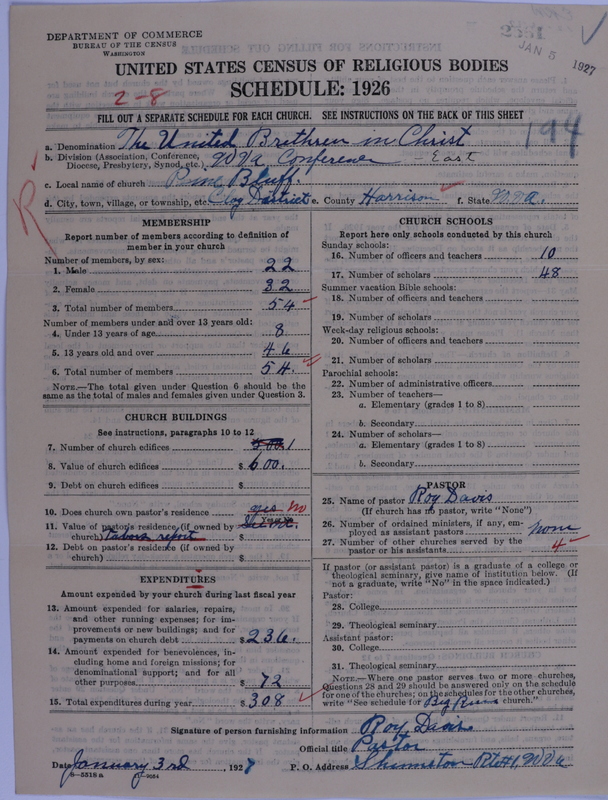 DEPARTMENT OF COMMERCE
BUREAU OF THE CENSUS
WASHINGTON
JAN 5 1927
UNITED STATES CENSUS OF RELIGIOUS BODIES
SCHEDULE: 1926
2-8
FILL OUT A SEPARATE SCHEDULE FOR EACH CHURCH. SEE INSTRUCTIONS ON THE BACK OF THIS SHEET
194
a. Denomination The United Brethren in Christ
b. Division (Association, Conference, Diocese, Presbytery, Synod, etc.) W Va Conference - East
c. Local name of church Pine Bluff.
d. City, town, village, or township, etc. Clay District e. County Harrison f. State W Va.
R
MEMBERSHIP
Report number of members according to definition of
member in your church
Number of members, by sex:
1. Male 22
2. Female 32
3. Total number of members 54
Number of members under and over 13 years old:
4. Under 13 years of age 8
5. 13 years old and over 46
6. Total number of members 54
NOTE.—The total given under Question 6 should be the
same as the total of males and females given under Question 3.
CHURCH BUILDINGS
See instructions, paragraphs 10 to 12
7. Number of church edifices 1
8. Value of church edifices $ 600.
9. Debt on church edifices $
10. Does church own pastor's residence yes no
11. Value of pastor's residence (if owned by
church) report $
12. Debt on pastor's residence (if owned by
church) $
EXPENDITURES
Amount expended by your church during last fiscal year
13. Amount expended for salaries, repairs,
and other running expenses; for im-
provements or new buildings; and for
payments on church debt $ 236.
14. Amount expended for benevolences, in-
cluding home and foreign missions; for
denominational support; and for all
other purposes $ 72
15. Total expenditures during year $ 308
CHURCH SCHOOLS
Report here only schools conducted by this church
Sunday schools:
16. Number of officers and teachers 10
17. Number of scholars 48
Summer vacation Bible schools:
18. Number of officers and teachers
19. Number of scholars
Week-day religious schools:
20. Number of officers and teachers
21. Number of scholars
Parochial schools:
22. Number of administrative officers
23. Number of teachers—
a. Elementary (grades 1 to 8)
b. Secondary
24. Number of scholars—
a. Elementary (grades 1 to 8)
b. Secondary
PASTOR
25. Name of pastor Roy Davis
(If church has no pastor, write "None")
26. Number of ordained ministers, if any, em-
ployed as assistant pastors none
27. Number of other churches served by the
pastor or his assistants 4
If pastor (or assistant pastor) is a graduate of a college or
theological seminary, give name of institution below. (If
not a graduate, write "No" in the space indicated.)
Pastor:
28. College
29. Theological seminary
Assistant pastor:
30. College
31. Theological seminary
NOTE.—Where one pastor serves two or more churches,
Questions 28 and 29 should be answered only on the schedule
for one of the churches; on the schedules for the other churches,
write "See schedule for Big Run church."
Signature of person furnishing information Roy Davis
Official title Pastor
Date January 3rd, 1927 P. O. Address Shinnston Rte #1, W Va
8-5518 a